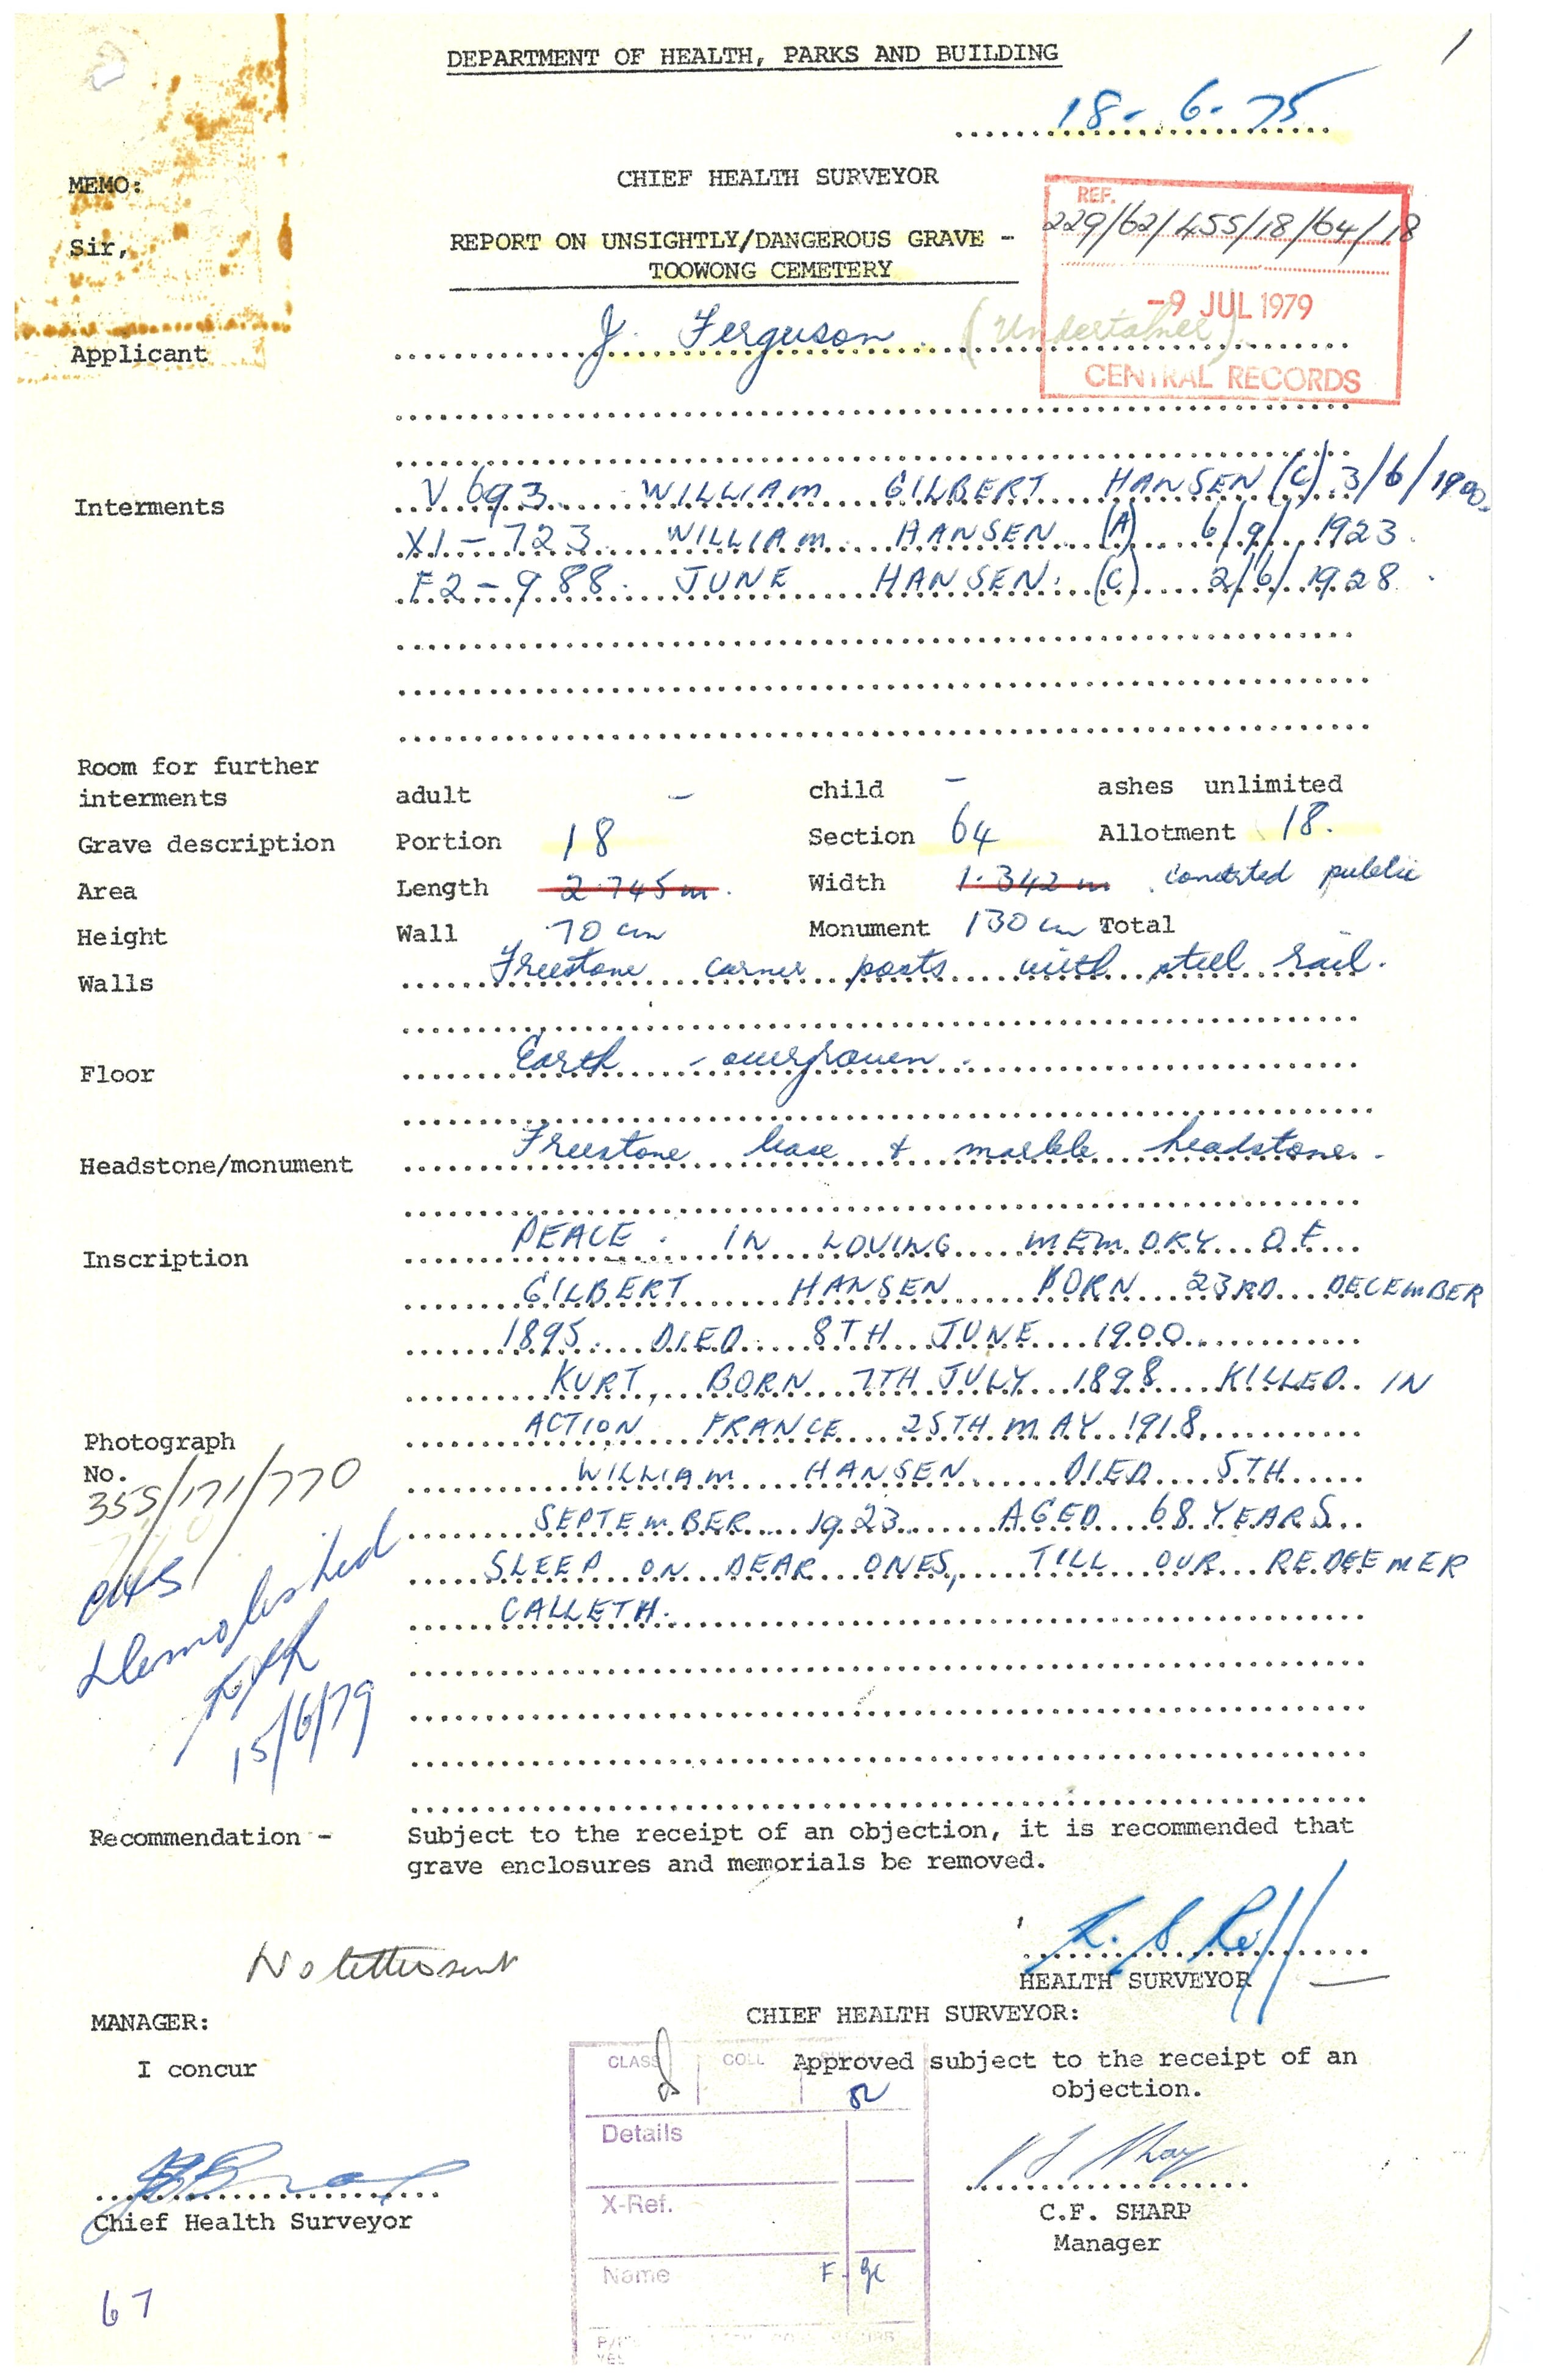 1
DEPARTMENT OF HEALTH, PARKS AND BUILDING
18-6-75
MEMO:
CHIEF HEALTH SURVEYOR
Sir,
REPORT ON UNSIGHTLY/DANGEROUS GRAVE -
TOOWONG CEMETERY
REF.
229/62/455/18/64/18
-9 JUL 1979
CENTRAL RECORDS
Applicant J. Ferguson. (Undertaker)
Interments V693 WILLIAM GILBERT HANSEN (C) 3/6/1900.
XI-723 WILLIAM HANSEN (A) 6/9/1923.
F2-988. JUNE HANSEN. (C) 2/6/1928.
Room for further
interments adult - child - ashes unlimited
Grave description Portion 18 Section 64 Allotment 18.
Area Length 2.745m. Width 1.342m public
Height Wall 70cm Monument 130cm Total
Walls Freestone corner posts with steel rail.
Floor Earth - overgrown.
Headstone/monument Freestone base & marble headstone.
Inscription PEACE. IN LOVING MEMORY OF
GILBERT HANSEN BORN 23RD DECEMBER
1895. DIED 8TH JUNE 1900
KURT, BORN 7TH JULY 1898 KILLED IN
ACTION FRANCE 25TH MAY 1918.
WILLIAM HANSEN DIED 5TH
SEPTEMBER 1923 AGED 68 YEARS
SLEEP ON DEAR ONES, TILL OUR REDEEMER
CALLETH.
Photograph
No.
355/171/770
CHS
Demolished
15/6/79
Recommendation - Subject to the receipt of an objection, it is recommended that
grave enclosures and memorials be removed.
No letter sent
HEALTH SURVEYOR
MANAGER:
CHIEF HEALTH SURVEYOR:
I concur
Approved subject to the receipt of an
objection.
CLASS
COLL
Details
X-Ref.
Name F
Chief Health Surveyor
C.F. SHARP
Manager
67